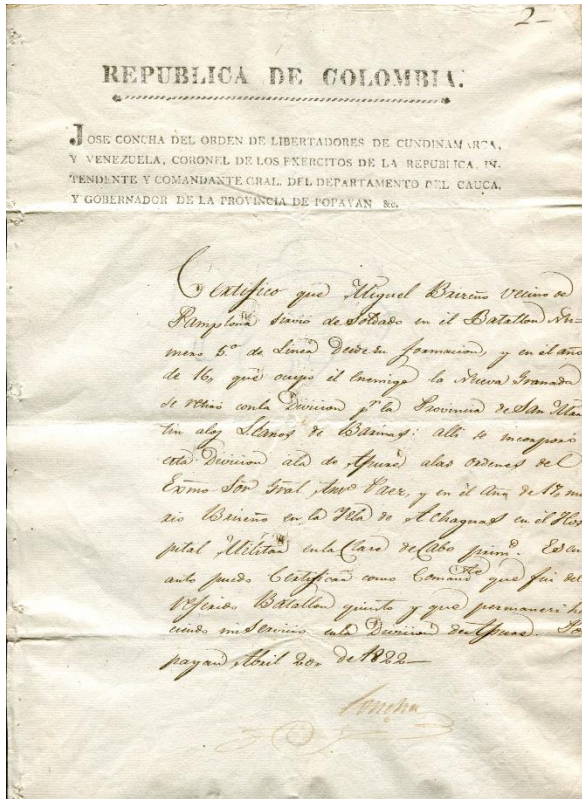 2-
REPUBLICA DE COLOMBIA.
JOSE CONCHA DEL ORDEN DE LIBERTADORES DE CUNDINAMARCA,
Y VENEZUELA, CORONEL DE LOS EXERCITOS DE LA REPUBLICA, IN-
TENDENTE Y COMANDANTE GRAL. DEL DEPARTAMENTO DEL CAUCA,
Y GOBERNADOR DE LA PROVINCIA DE POPAYAN &c.
Certifico que Miguel Brireño vecino de
Pamplona sirvio de Soldado en el Batallon Nu-
mero 5.º de Linea desde su formacion, y en el año
de 16, que ocupó el Enemigo la Nueva Granada
se retiró con la Division p.r la Provincia de San Mar
tin a los Llanos de Barinas: alli se incorporó
esta Division ala de Apure alas ordenes del
Exmo Sor Gral Paez, y en el Año de 17 mu
rio Brireño en la Isla de Achaguas en el Hos
pital Militar en la Clase de Cabo prim.º Es cu
anto puedo Certificar como Comand.te que fui del
referido Batallon quinto y que permaneci ha
ciendo mi Servicio en la Division de Apure. Po
payan Abril 20, de 1822-
Concha